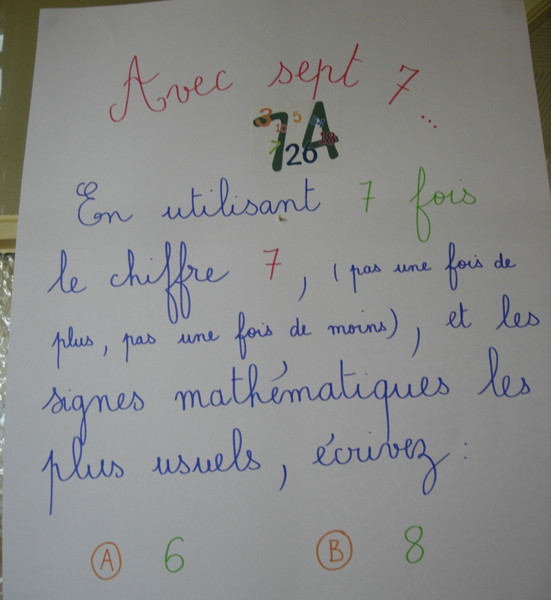 Avec sept 7 ...
7A
26
En utilisant 7 fois
le chiffre 7, (pas une fois de
plus, pas une fois de moins), et les
signes mathématiques les
plus usuels, écrivez :
A 6 B 8